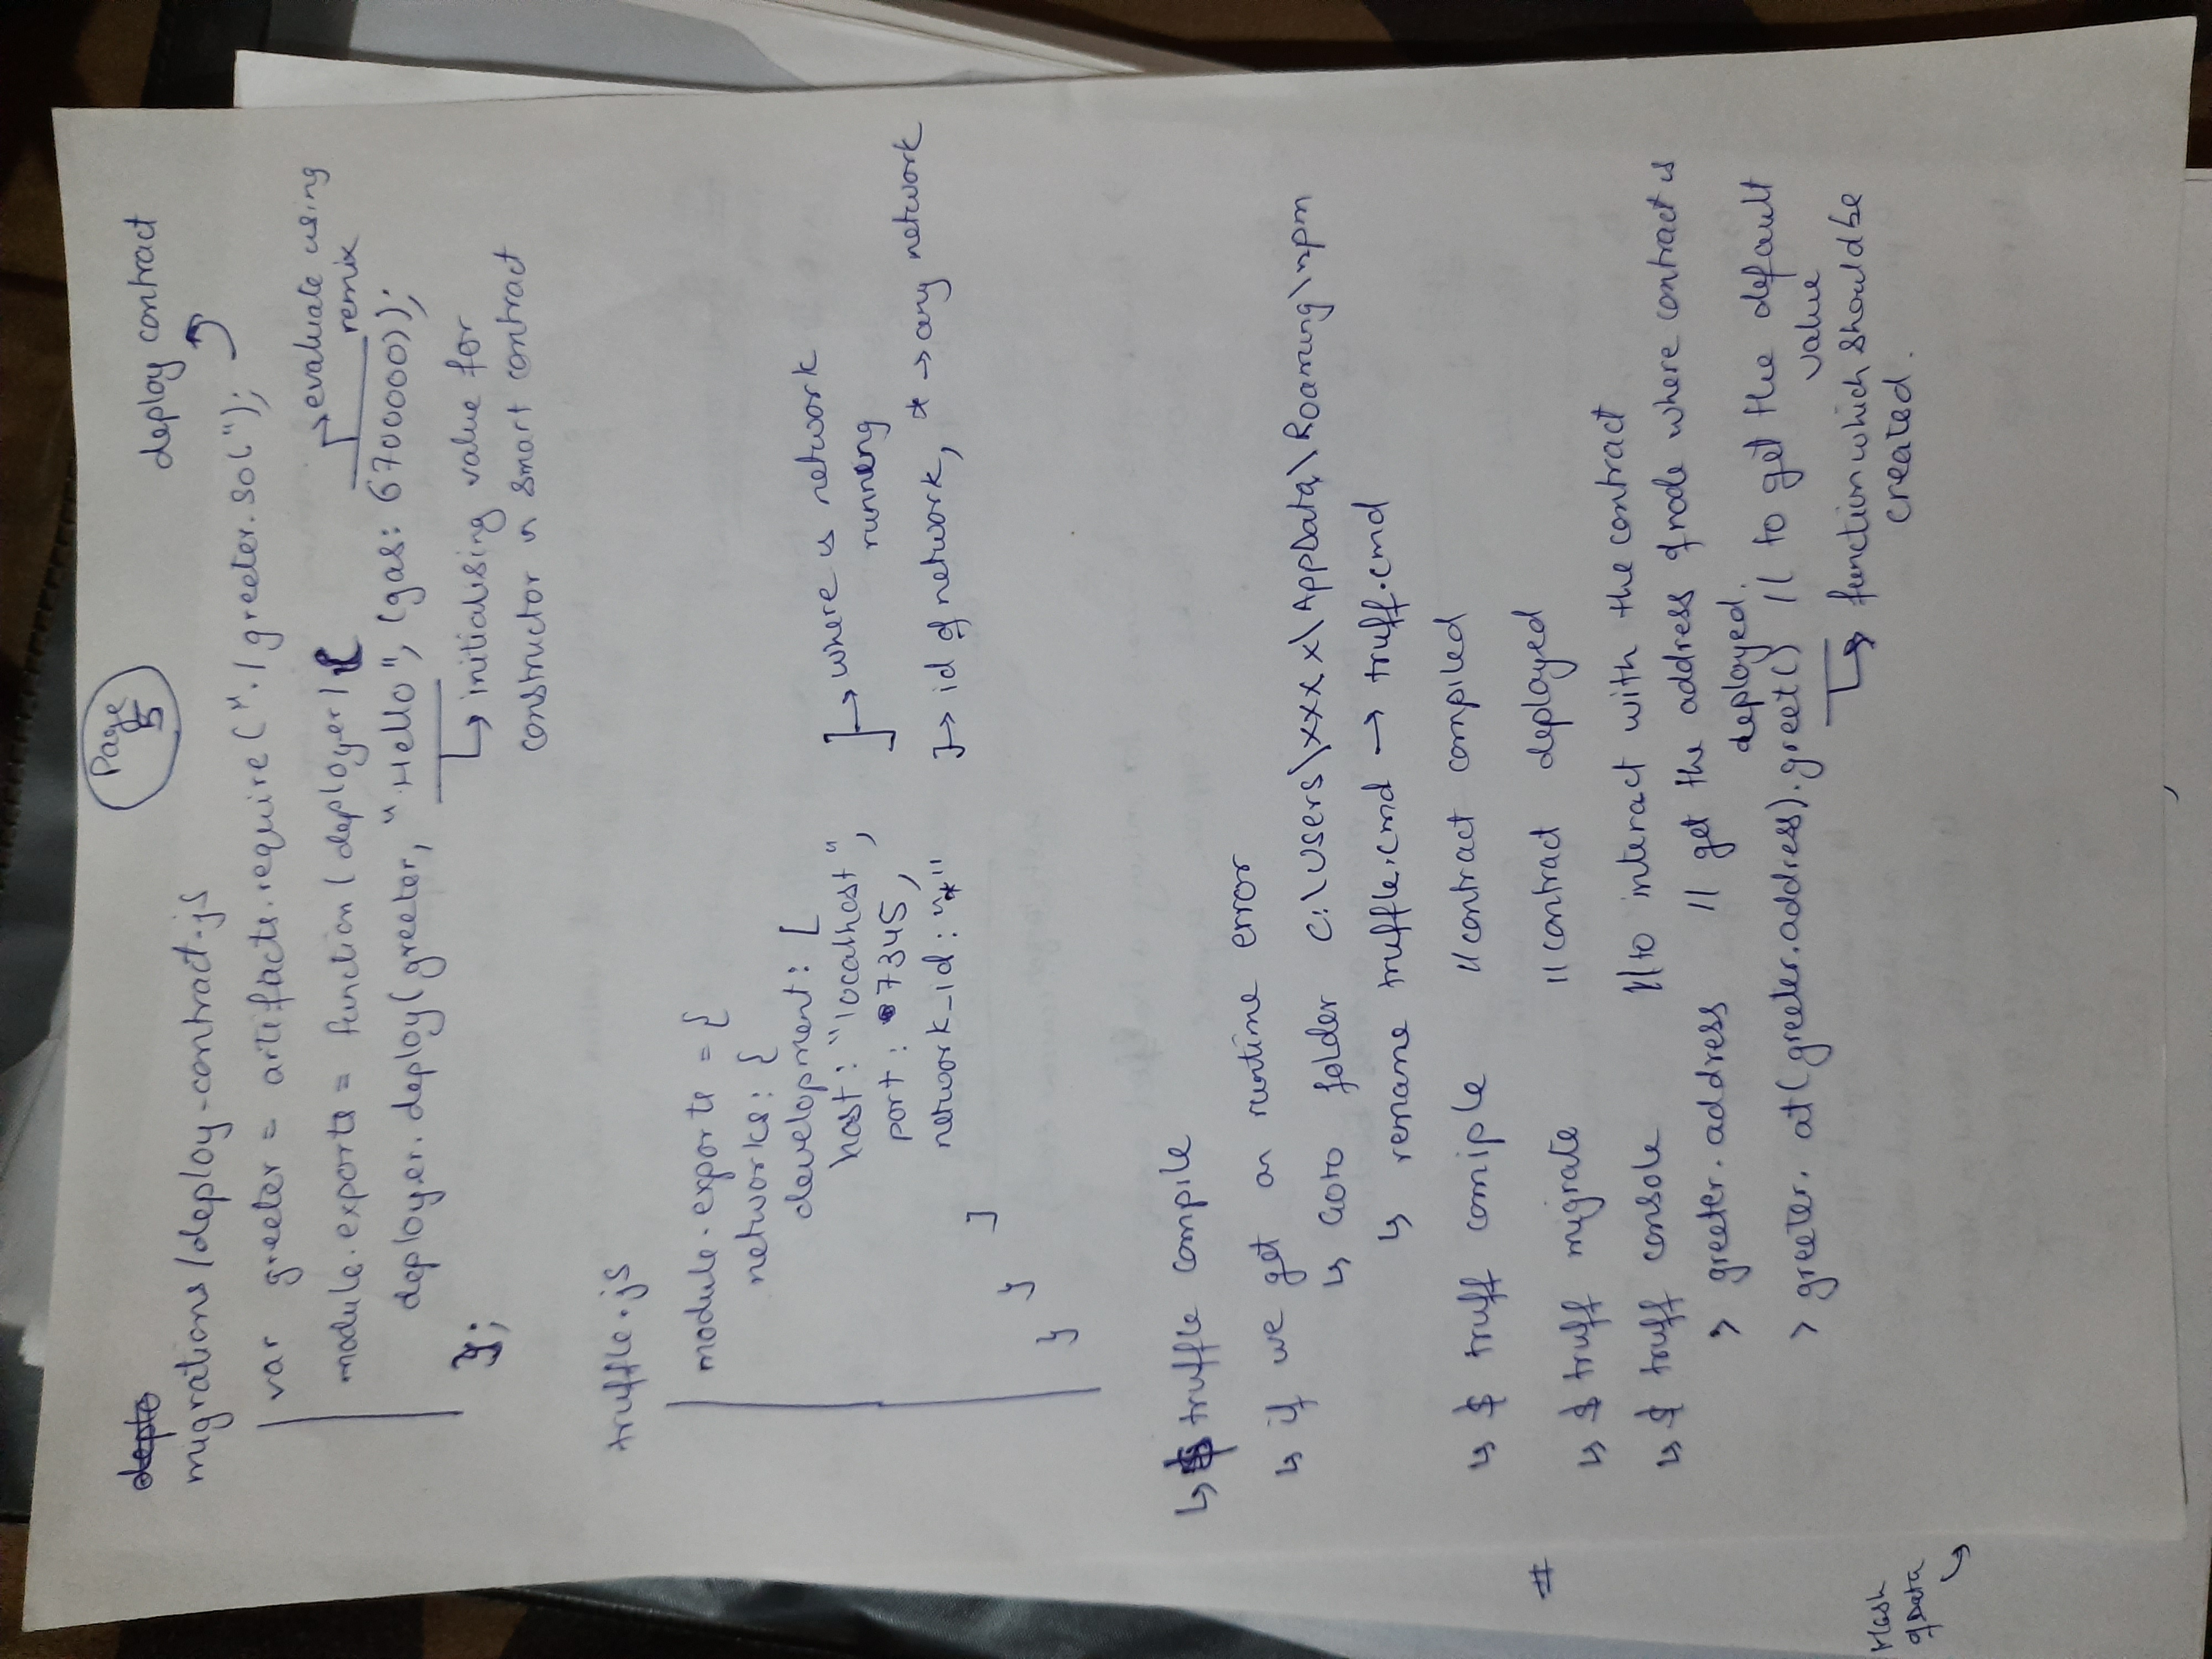 Page
5
depto
migrations/deploy-contract.js
deploy contract
var greeter = artifacts.require("./greeter.sol");
module.exports = function(deployer){
evaluate using
remix
deployer.deploy(greeter, "Hello", (gas: 6700000));
};
initialising value for
constructor in smart contract
truffle.js
module.exports = {
networks: {
development: [
host: "localhost",
port: 7345,
where is network
running
network_id: "*"
id of network, * → any network
]
}
}
↳ $ truffle compile
↳ if we get an runtime error
↳ Goto folder C:\Users\xxxx\AppData\Roaming\npm
↳ rename truffle.cmd → truff.cmd
↳ $ truff comiple //contract compiled
#
↳ $ truff migrate //contract deployed
↳ $ truff console //to interact with the contract
> greeter.address // get the address of node where contract is
deployed.
> greeter.at(greeter.address).greet() // to get the default
value
↳ function which should be
created.
Hash
of Data